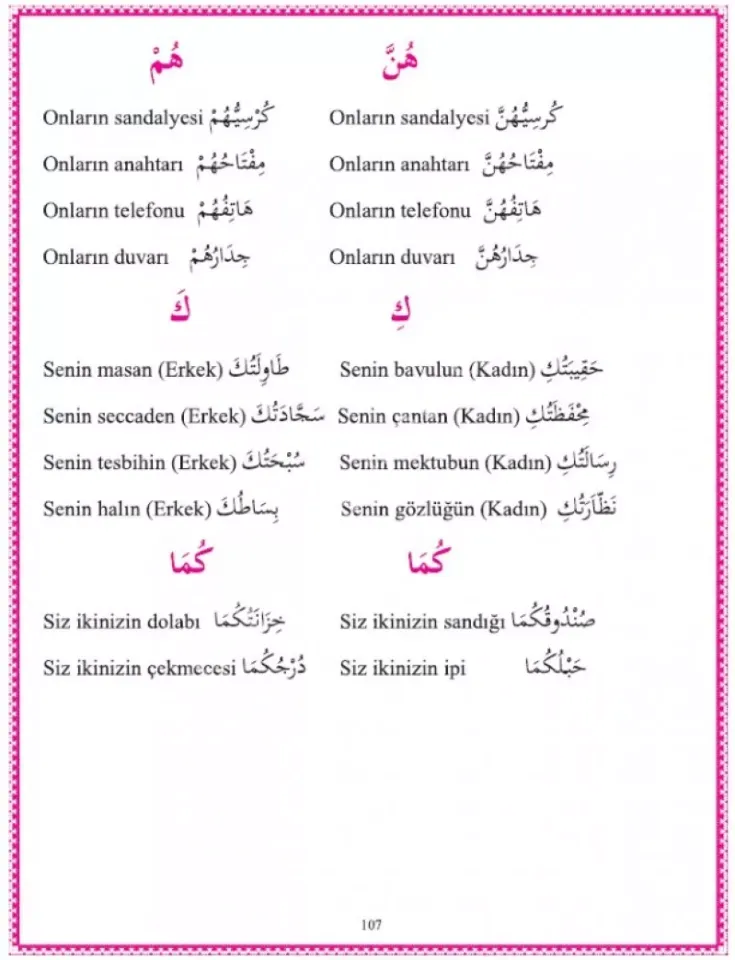 هُمْ هُنَّ
Onların sandalyesi كُرْسِيُّهُمْ Onların sandalyesi كُرسِيُّهُنَّ
Onların anahtarı مِفْتَاحُهُمْ Onların anahtarı مِفْتَاحُهُنَّ
Onların telefonu هَاتِفُهُمْ Onların telefonu هَاتِفُهُنَّ
Onların duvarı جِدَارُهُمْ Onların duvarı جِدَارُهُنَّ
كَ كِ
Senin masan (Erkek) طَاوِلَتُكَ Senin bavulun (Kadın) حَقِيبَتُكِ
Senin seccaden (Erkek) سَجَّادَتُكَ Senin çantan (Kadın) مِحْفَظَتُكِ
Senin tesbihin (Erkek) سُبْحَتُكَ Senin mektubun (Kadın) رِسَالَتُكِ
Senin halın (Erkek) بِسَاطُكَ Senin gözlüğün (Kadın) نَظَّارَتُكِ
كُمَا كُمَا
Siz ikinizin dolabı خِزَانَتُكُمَا Siz ikinizin sandığı صُنْدُوقُكُمَا
Siz ikinizin çekmecesi دُرْجُكُمَا Siz ikinizin ipi حَبْلُكُمَا
107